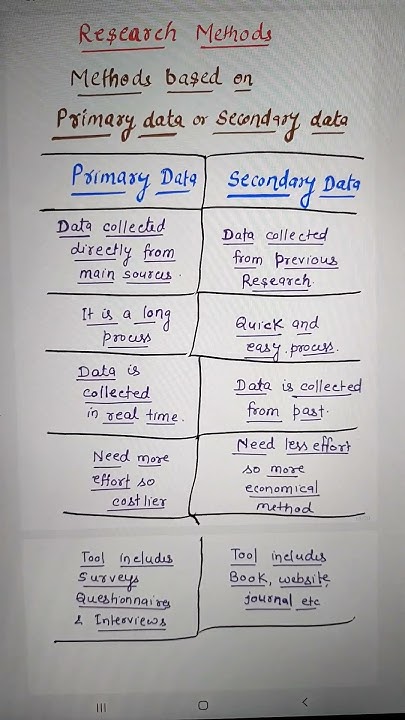 Research Methods
Methods based on
Primary data or Secondary data
Primary Data
Secondary Data
Data collected
directly from
main sources.
Data collected
from Previous
Research.
It is a long
process
Quick and
easy process.
Data is
collected
in real time.
Data is collected
from past.
Need more
effort so
costlier
Need less effort
so more
economical
method
Tool includes
Surveys
Questionnaires
& Interviews
Tool includes
Book, website,
journal etc